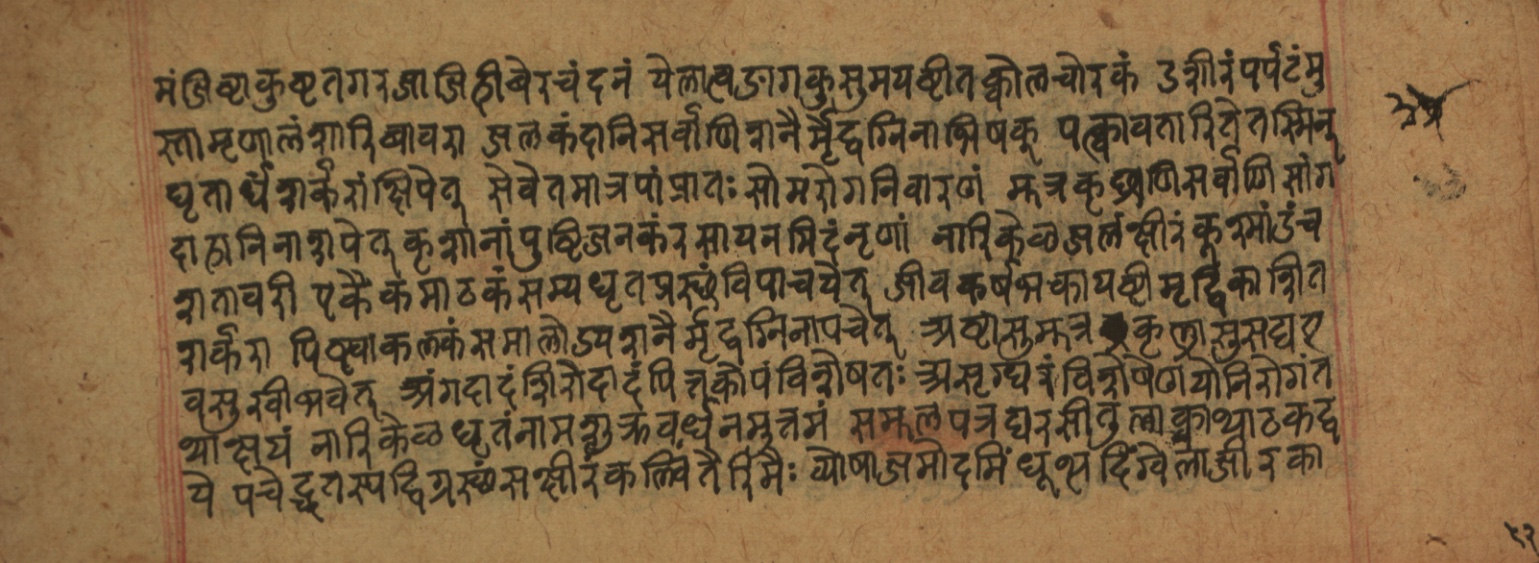 मंजिष्टाकुष्टतगरअजाजिह्रीबेरचंदनं येलात्वङागकुसुमयष्टीतक्कोलचोरकं उशीरंपर्पटंमु
स्तामृणालंशारिबावरा जलकंदानिसर्वाणिशनैर्मृद्वग्निनाभिषक् पक्त्वावतारितेतस्मिन्
घृतार्धंशर्करांक्षिपेत् सेवेतमात्रपांप्रातः सोमरोगनिवारणं मूत्रकृछ्राणिसर्वाणिसांग
दाहानिनाशपेत् कृशानांपुष्टिजनकंरसायनमिदंनृणां नारिकेळजलंक्षीरंकूश्मांडंच
शतावरी एकैकंमाठकंसम्यघृतप्रस्छंविपाचयेत् जीवकर्षभकायष्टीमृद्विकाशित
शर्करा पिष्ट्वाकलकंसमालोड्यशनैर्मृद्वग्निनापचेत् अष्टासुमूत्रकृछ्रासुसद्यए
वसुखीभवेत् अंगदाहंशिरोदाहंपित्तकोपंविशेषतः असृग्धरंविशेषेणयोनिरोगंत
थाक्षयं नारिकेळघृतंनामशुक्रवर्धनमुत्तमं समूलपत्रद्यरसीतुलाक्काथाठकद्व
ये पचेद्घृतस्यद्विप्रस्छंसक्षीरंकल्कितैरिमैः व्योषाजमोदमिंधूथहिंग्वेलाजीरका
५२